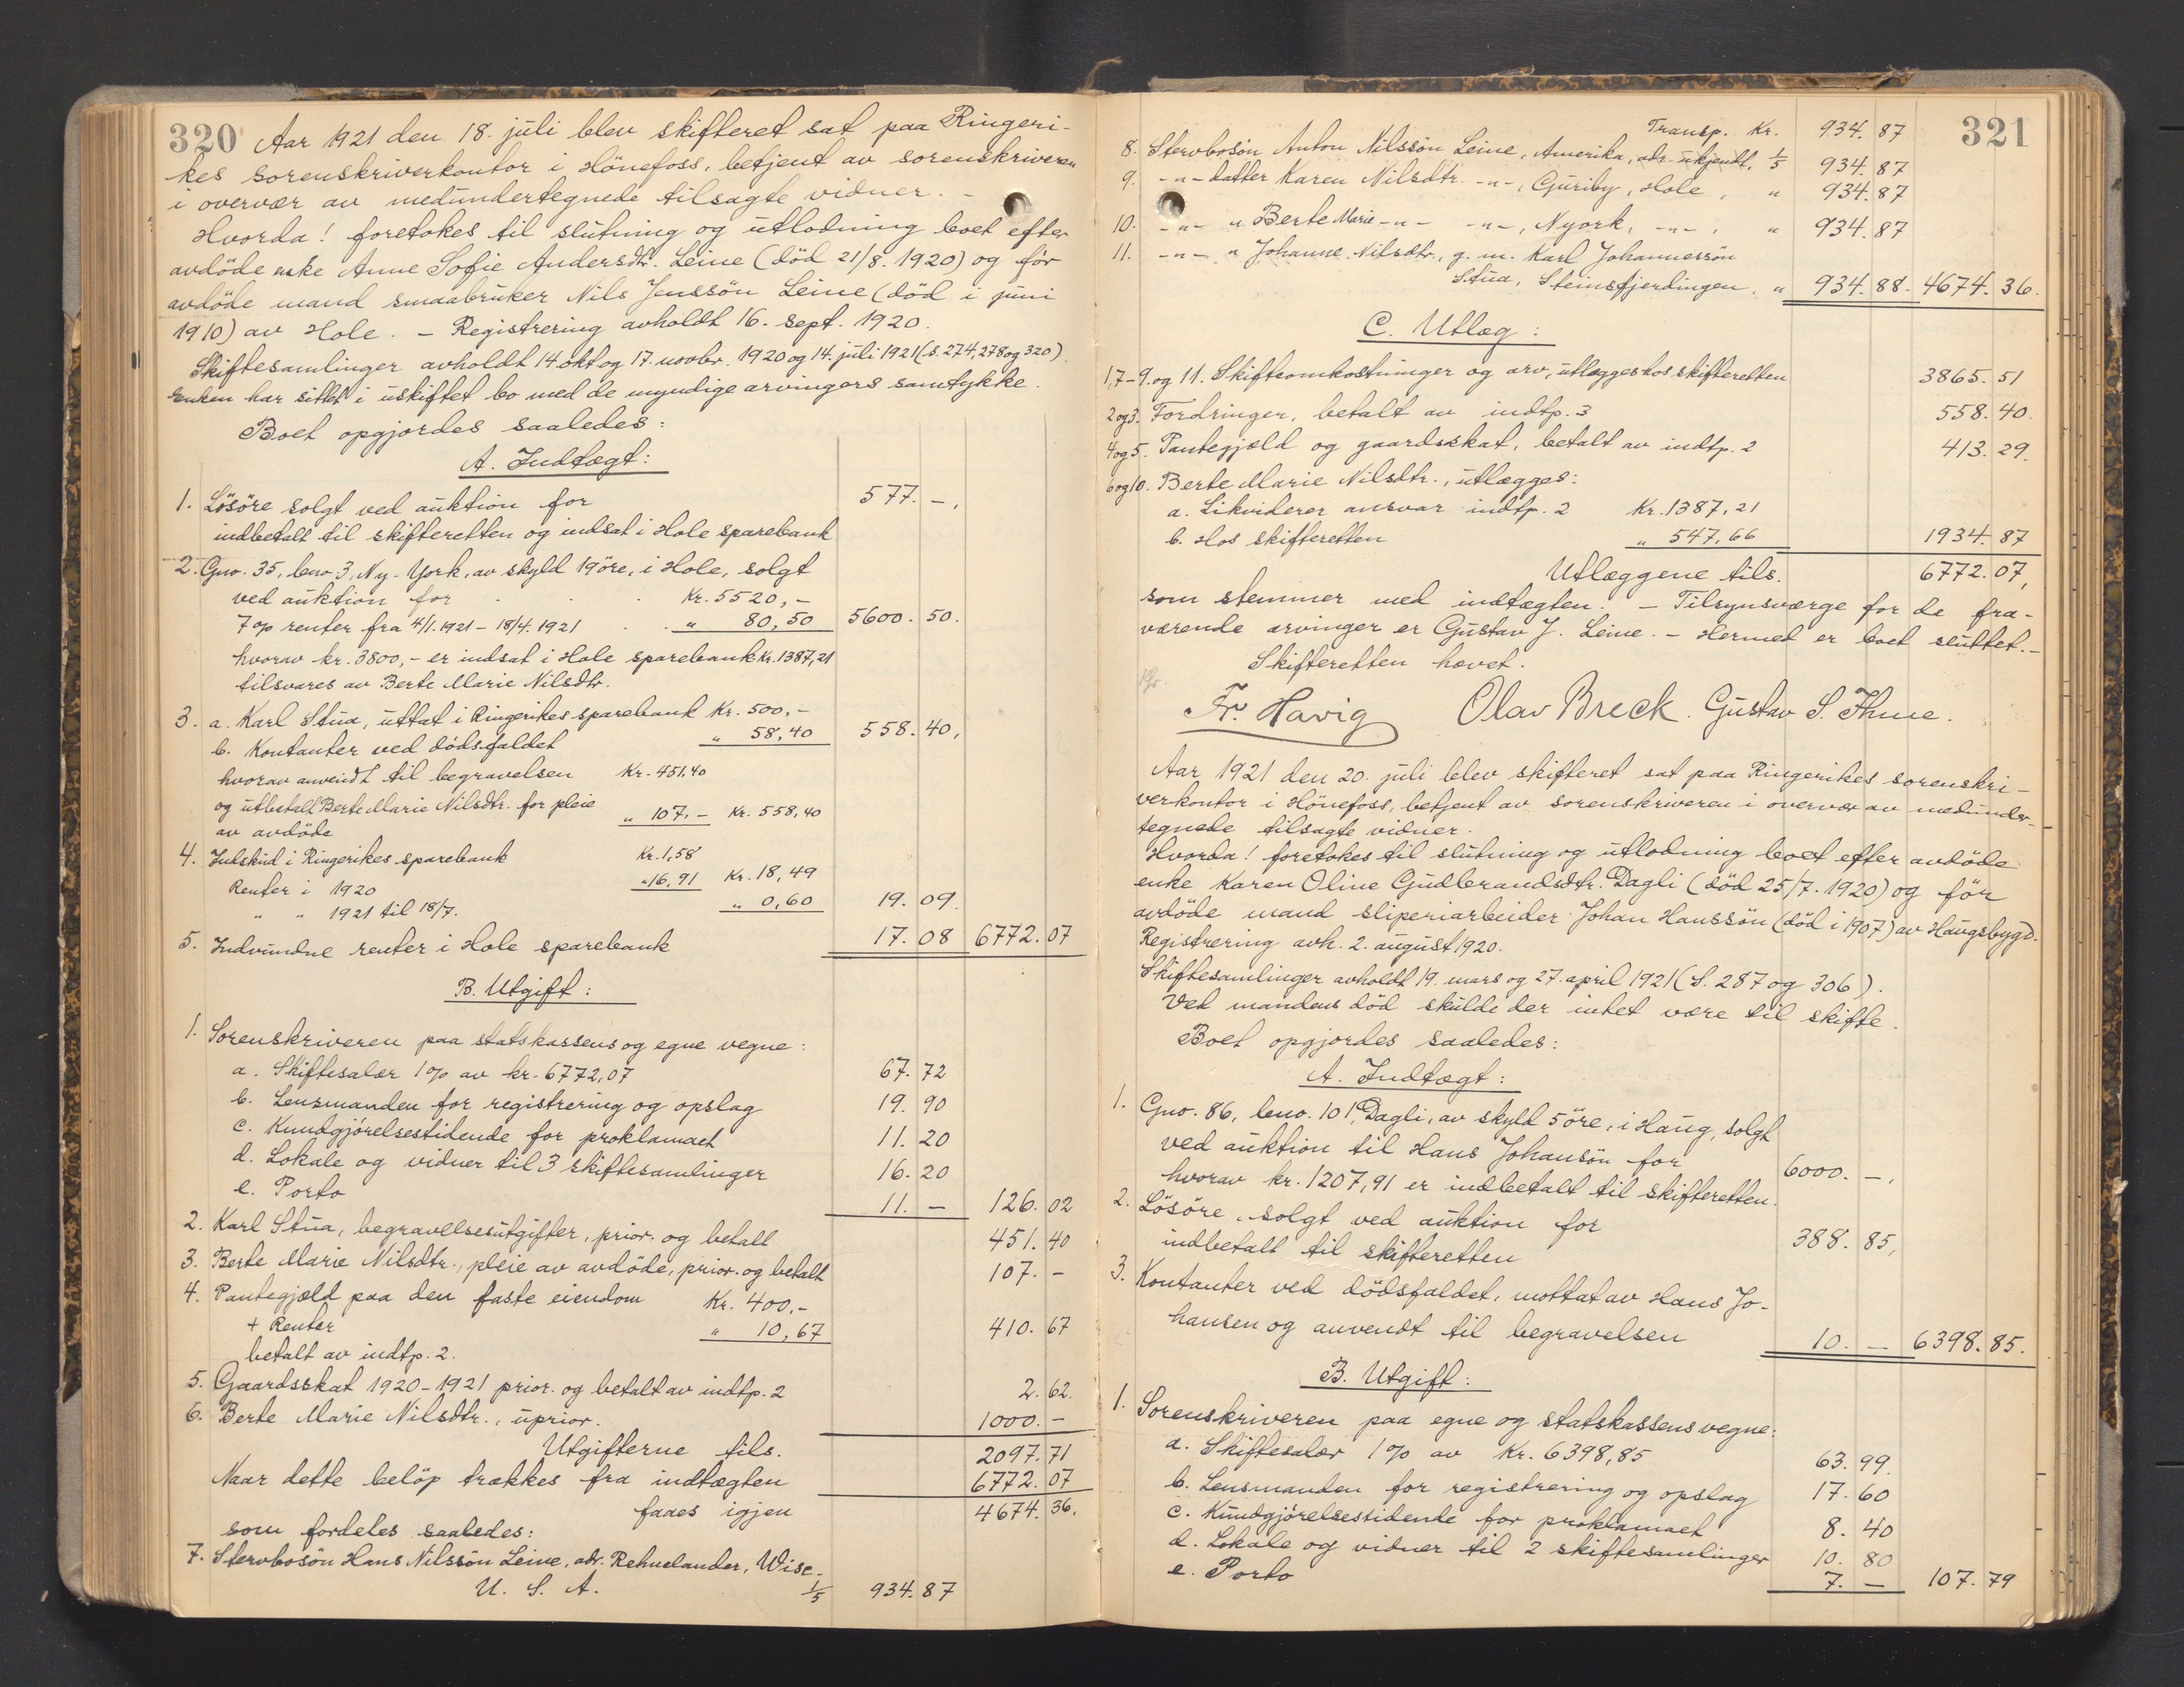 320
Aar 1921 den 18. juli blev skifteret sat paa Ringeri-
kes sorenskriverkontor i Hönefoss, betjent av sorenskriveren
i overvær av medundertegnede tilsagte vidner. -
Hvorda! foretokes til slutning og utlodning boet efter
avdöde enke Anne Sofie Andersdtr. Leine (död 21/8. 1920) og för
avdöde mand smaabruker Nils Jenssön Leine (död i juni
1910) av Hole. - Registrering avholdt 16. sept. 1920.
Skiftesamlinger avholdt 14 okt og 17. novbr. 1920 og 14. juli 1921 (s. 274, 278 og 320).
Enken har sittet i uskiftet bo med de myndige arvingers samtykke.
Boet opgjordes saaledes:
A. Indtægt:
1. Lösöre solgt ved auktion for 577. -,
indbetalt til skifteretten og indsat i Hole sparebank
2. Gno. 35, bno 3, Ny-York, av skyld 19 öre, i Hole, solgt
ved auktion for Kr. 5520,-
7 % renter fra 4/1. 1921 - 18/4. 1921 " 80,50 5600. 50.
hvorav kr. 3800,- er indsat i Hole sparebank Kr. 1387,21
tilsvares av Berte Marie Nilsdtr.
3. a. Karl Stua, uttat i Ringerikes sparebank Kr. 500,-
b. Kontanter ved dödsfaldet " 58,40 558. 40,
hvorav anvendt til begravelsen Kr. 451.40
og utbetalt Berte Marie Nilsdtr. for pleie
av avdöde " 107,- Kr. 558,40
4. Indskud i Ringerikes sparebank Kr. 1,58
Renter i 1920 " 16,91 Kr. 18,49
" " 1921 til 18/7. " 0,60 19. 09.
5. Indvundne renter i Hole sparebank 17. 08 6772. 07
B. Utgift:
1. Sorenskriveren paa statskassens og egne vegne:
a. Skiftesalær 1 % av kr. 6772,07 67. 72
b. Lensmanden for registrering og opslag 19. 90
c. Kundgjörelsestidende for proklamaet 11. 20
d. Lokale og vidner til 3 skiftesamlinger 16. 20
e. Porto 11. - 126. 02
2. Karl Stua, begravelsesutgifter, prior. og betalt 451. 40
3. Berte Marie Nilsdtr., pleie av avdöde, prior. og betalt 107. -
4. Pantegjæld paa den faste eiendom Kr. 400,-
+ Renter " 10,67 410. 67
betalt av indtp. 2.
5. Gaardsskat 1920-1921 prior. og betalt av indtp. 2 2. 62.
6. Berte Marie Nilsdtr., uprior. 1000. -
Utgifterne tils. 2097. 71
Naar dette belöp trækkes fra indtægten 6772. 07
faaes igjen 4674. 36.
som fordeles saaledes:
7. Stervbosön Hans Nilssön Leine, adr. Rehnelander, Wisc.
U. S. A. 1/5 934. 87
321
Transp. Kr. 934. 87
8. Stervbosön Anton Nilssön Leine, Amerika, adr. ukjendt, 1/5 934. 87
9. -"- datter Karen Nilsdtr. -"-, Guriby, Hole, " 934. 87
10. -"- " Berte Marie -"- -"-, Nyork, -"-, " 934. 87
11. -"- " Johanne Nilsdtr., g. m. Karl Johannessön
Stua, Steinsfjerdingen, " 934. 88. 4674. 36.
C. Utlæg:
1, 7-9. og 11. Skifteomkostninger og arv, utlægges hos skifteretten 3865. 51
2 og 3. Fordringer, betalt av indtp. 3 558. 40.
4 og 5. Pantegjæld og gaardsskat, betalt av indtp. 2 413. 29.
6 og 10. Berte Marie Nilsdtr., utlægges:
a. Likviderer ansvar indtp. 2 Kr. 1387,21
b. Hos skifteretten " 547,66 1934. 87
Utlæggene tils. 6772. 07,
som stemmer med indtægten. - Tilsynsværge for de fra-
værende arvinger er Gustav J. Leine. - Hermed er boet sluttet. -
Skifteretten hævet.
Fr. Havig Olav Breck. Gustav S. Thme.
Aar 1921 den 20. juli blev skifteret sat paa Ringerikes sorenskri-
verkontor i Hönefoss, betjent av sorenskriveren i overvær av medunder-
tegnede tilsagte vidner.
Hvorda! foretokes til slutning og utlodning boet efter avdöde
enke Karen Oline Gudbrandsdtr. Dagli (död 25/7. 1920) og för
avdöde mand sliperiarbeider Johan Hanssön (död i 1907) av Haugsbygd.
Registrering avh. 2. august 1920.
Skiftesamlinger avholdt 19. mars og 27. april 1921 (S. 287 og 306).
Ved mandens död skulde der intet være til skifte.
Boet opgjordes saaledes:
A. Indtægt:
1. Gno. 86, bno. 101, Dagli, av skyld 5 öre, i Haug, solgt
ved auktion til Hans Johansön for 6000. -,
hvorav kr. 1207,91 er indbetalt til skifteretten.
2. Lösöre, solgt ved auktion for 388. 85,
indbetalt til skifteretten
3. Kontanter ved dödsfaldet, mottat av Hans Jo-
hansen og anvendt til begravelsen 10. - 6398. 85.
B. Utgift:
1. Sorenskriveren paa egne og statskassens vegne:
a. Skiftesalær 1 % av Kr. 6398,85 63. 99.
b. Lensmanden for registrering og opslag 17. 60
c. Kundgjörelsestidende for proklamaet 8. 40
d. Lokale og vidner til 2 skiftesamlinger 10. 80
e. Porto 7. - 107. 79